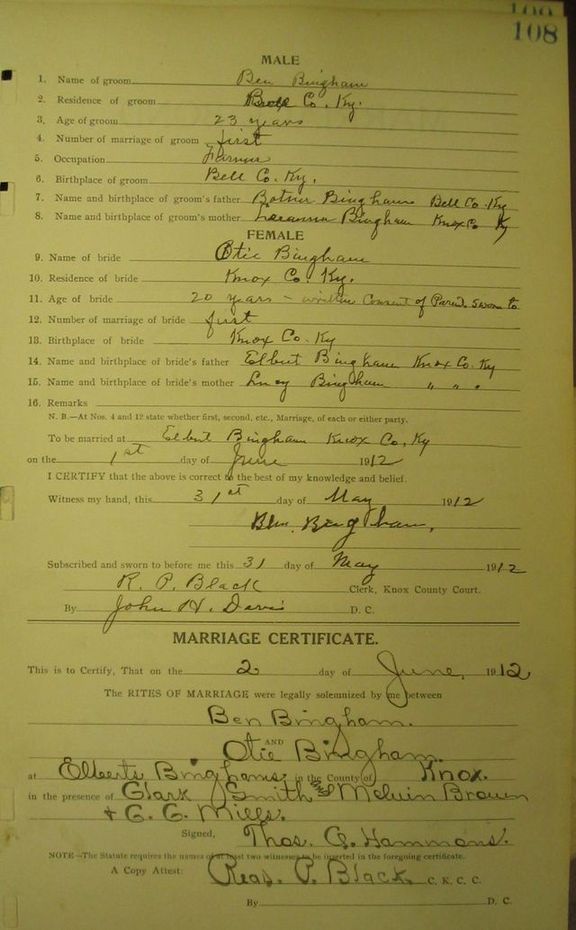 108
MALE
1. Name of groom Ben Bingham
2. Residence of groom Bell Co. Ky.
3. Age of groom 23 years
4. Number of marriage of groom first
5. Occupation Farmer
6. Birthplace of groom Bell Co. Ky.
7. Name and birthplace of groom's father Bingham Bell Co. Ky
8. Name and birthplace of groom's mother Bingham Knox Co Ky
FEMALE
9. Name of bride Otie Bingham
10. Residence of bride Knox Co. Ky.
11. Age of bride 20 years – written Consent of Parent sworn to
12. Number of marriage of bride first
13. Birthplace of bride Knox Co. Ky
14. Name and birthplace of bride's father Elbert Bingham Knox Co. Ky
15. Name and birthplace of bride's mother Lucy Bingham " " "
16. Remarks
N. B.—At Nos. 4 and 12 state whether first, second, etc., Marriage, of each or either party.
To be married at Elbert Bingham Knox Co, Ky
on the 1st day of June 1912
I CERTIFY that the above is correct to the best of my knowledge and belief.
Witness my hand, this 31st day of May 1912
Ben Bingham,
Subscribed and sworn to before me this 31 day of May 1912
R. P. Black Clerk, Knox County Court.
By John H. Davis D. C.
MARRIAGE CERTIFICATE.
This is to Certify, That on the 2 day of June, 1912
The RITES OF MARRIAGE were legally solemnized by me between
Ben Bingham.
AND
Otie Bingham.
at Elberts Binghams in the County of Knox.
in the presence of Clark Smith and Melvin Brown
+ G. G. Mills.
Signed, Thos. Q. Hammons.
NOTE—The Statute requires the names of at least two witnesses to be inserted in the foregoing certificate.
A Copy Attest: Reas. P. Black C. K. C. C.
By D. C.